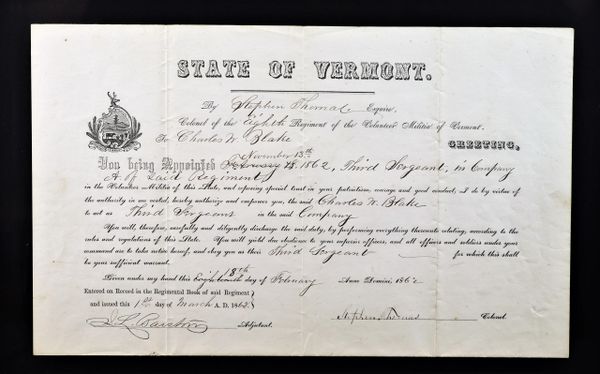 STATE OF VERMONT.
By Stephen Thomas Esquire,
Colonel of the Eighth Regiment of the Volunteer Militia of Vermont.
To Charles W. Blake GREETING,
November 13th
You being Appointed February 18, 1862, Third Sergeant, in Company
A of said Regiment
in the Volunteer Militia of this State, and reposing special trust in your patriotism, courage and good conduct, I do by virtue of
the authority in me vested, hereby authorize and empower you, the said Charles W. Blake
to act as Third Sergeant in the said Company
You will, therefore, carefully and diligently discharge the said duty, by performing everything thereunto relating, according to the
rules and regulations of this State. You will yield due obedience to your superior officers, and all officers and soldiers under your
command are to take notice hereof, and obey you as their Third Sergeant for which this shall
be your sufficient warrant.
18th
Given under my hand this day of February Anno Domini, 1862
Entered on Record in the Regimental Book of said Regiment
and issued this 1st day of March A. D. 1862.
Adjutant. Stephen Thomas Colonel.